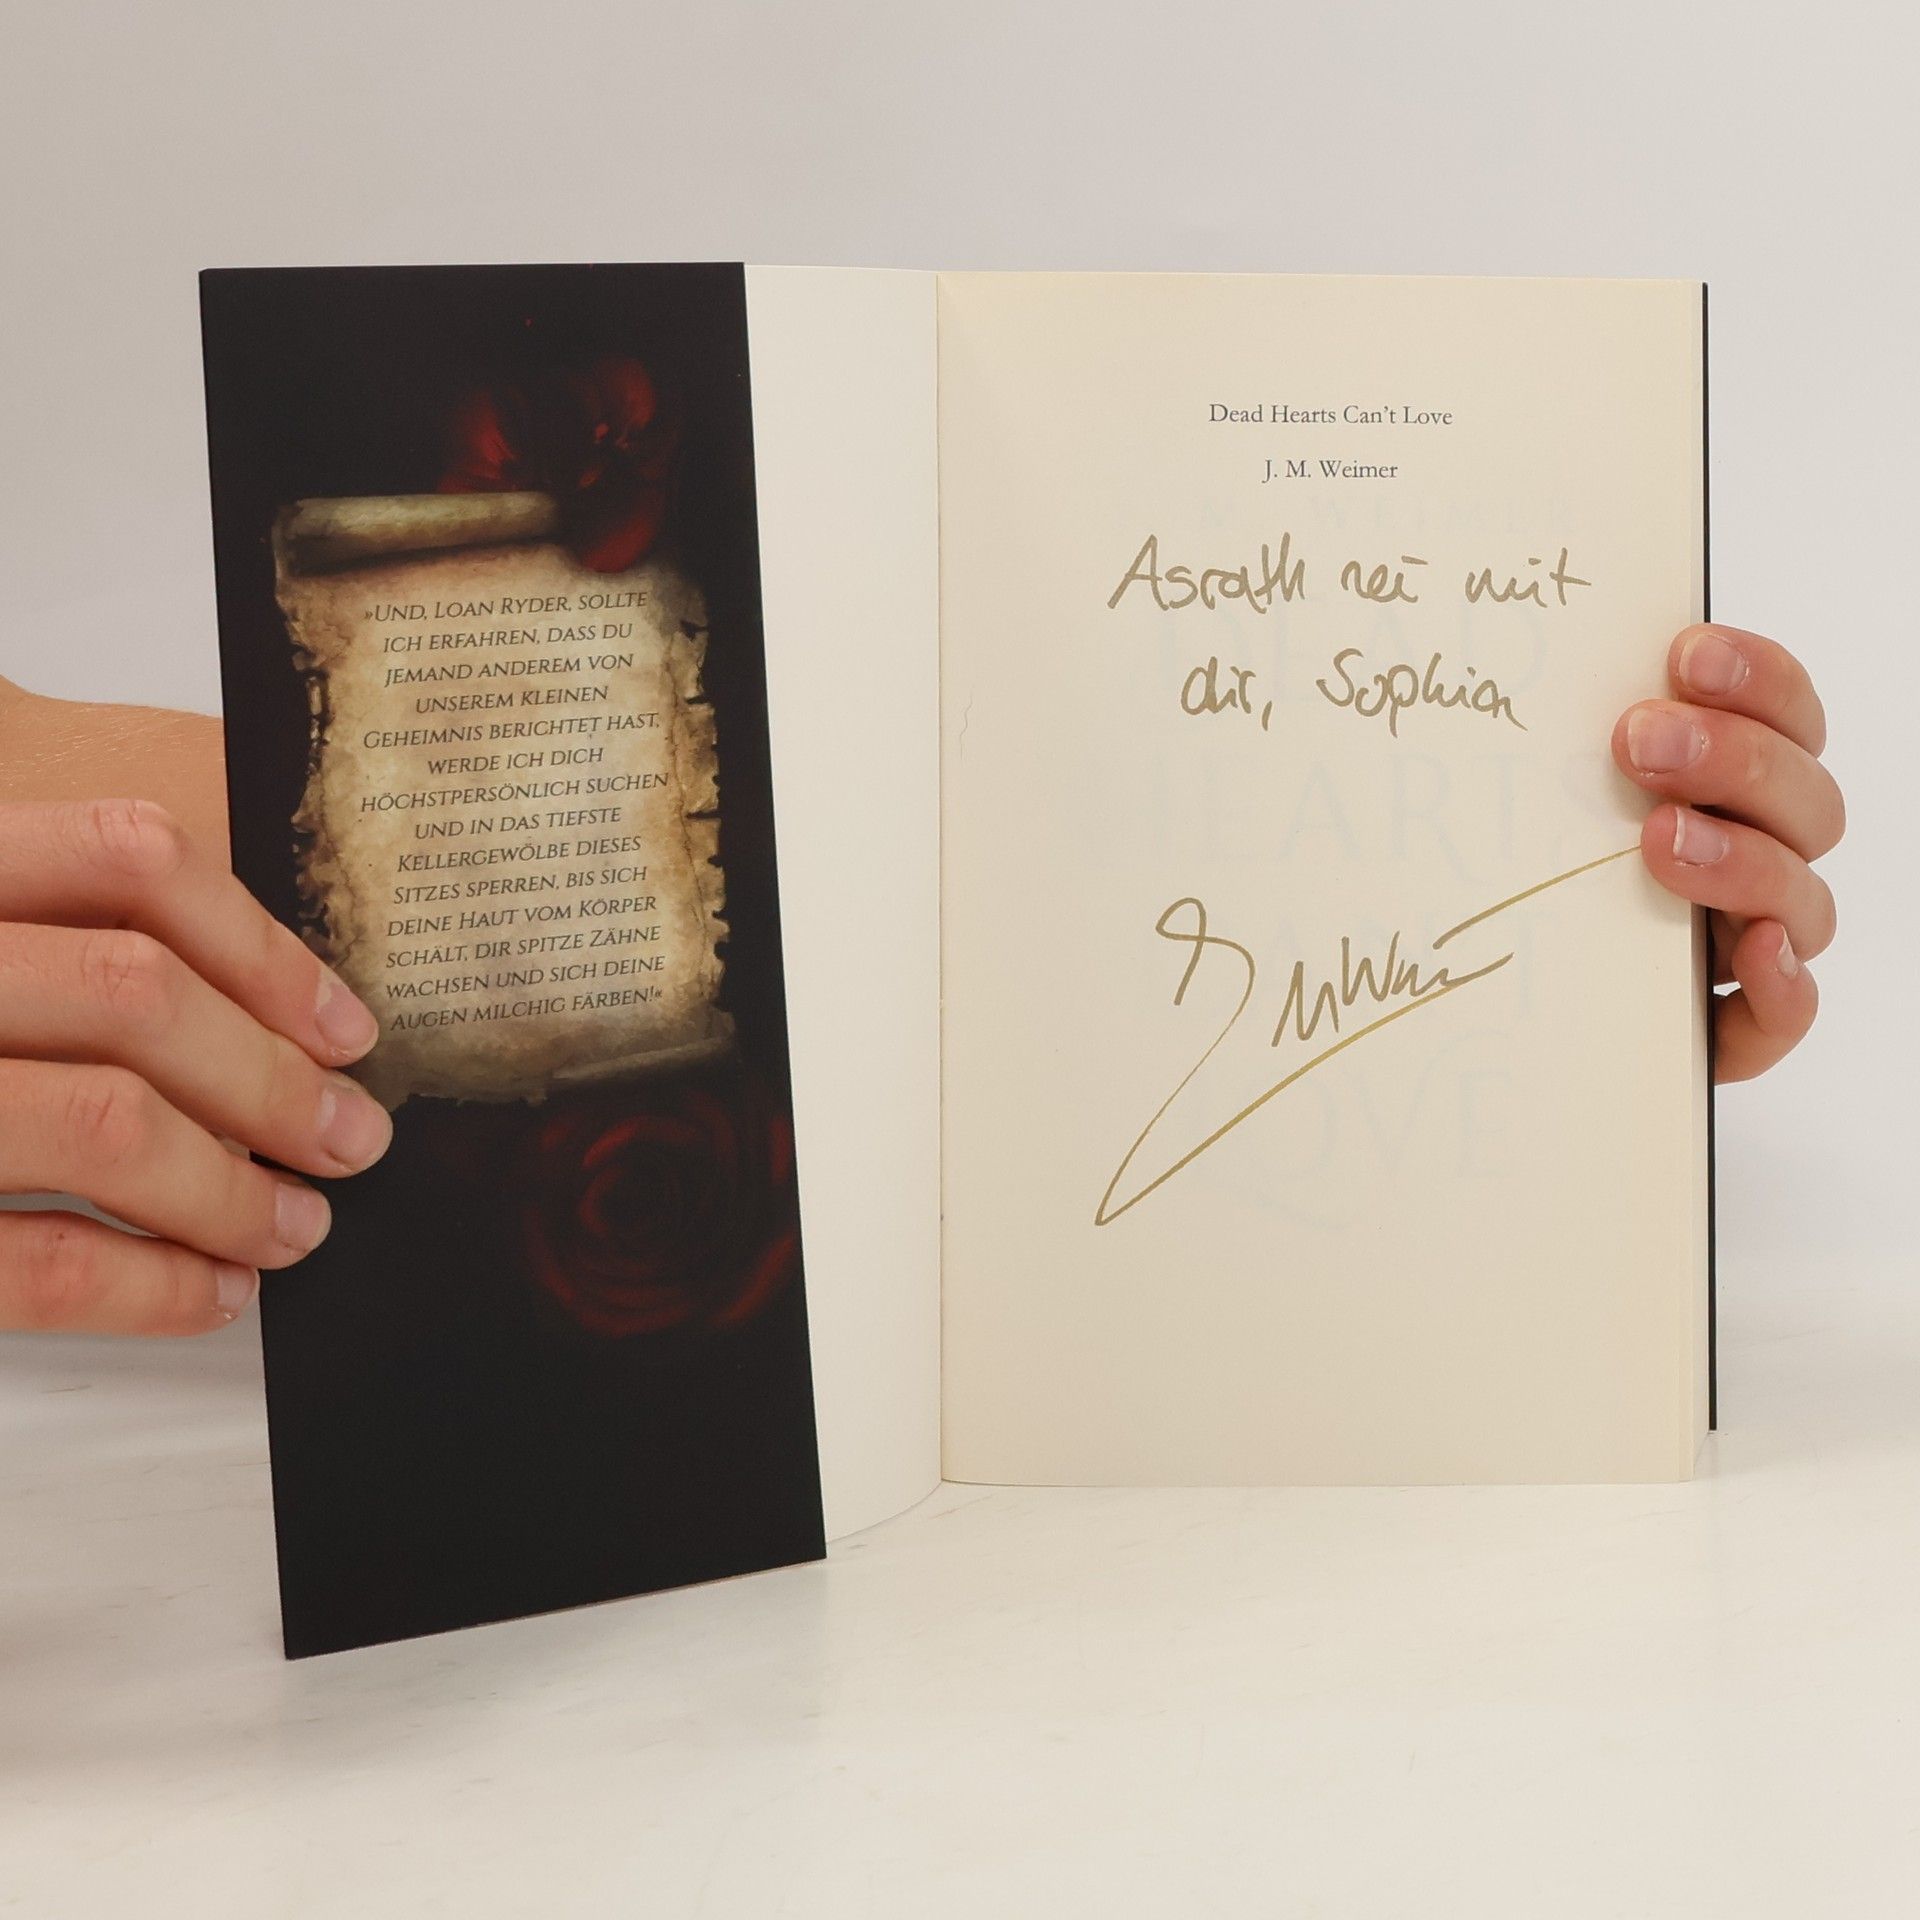 »Und, Loan Ryder, sollte
ich erfahren, dass du
jemand anderem von
unserem kleinen
Geheimnis berichtet hast,
werde ich dich
höchstpersönlich suchen
und in das tiefste
Kellergewölbe dieses
Sitzes sperren, bis sich
deine Haut vom Körper
schält, dir spitze Zähne
wachsen und sich deine
Augen milchig färben!«
Dead Hearts Can't Love
J. M. Weimer
Asrath sei mit
dir, Sophia